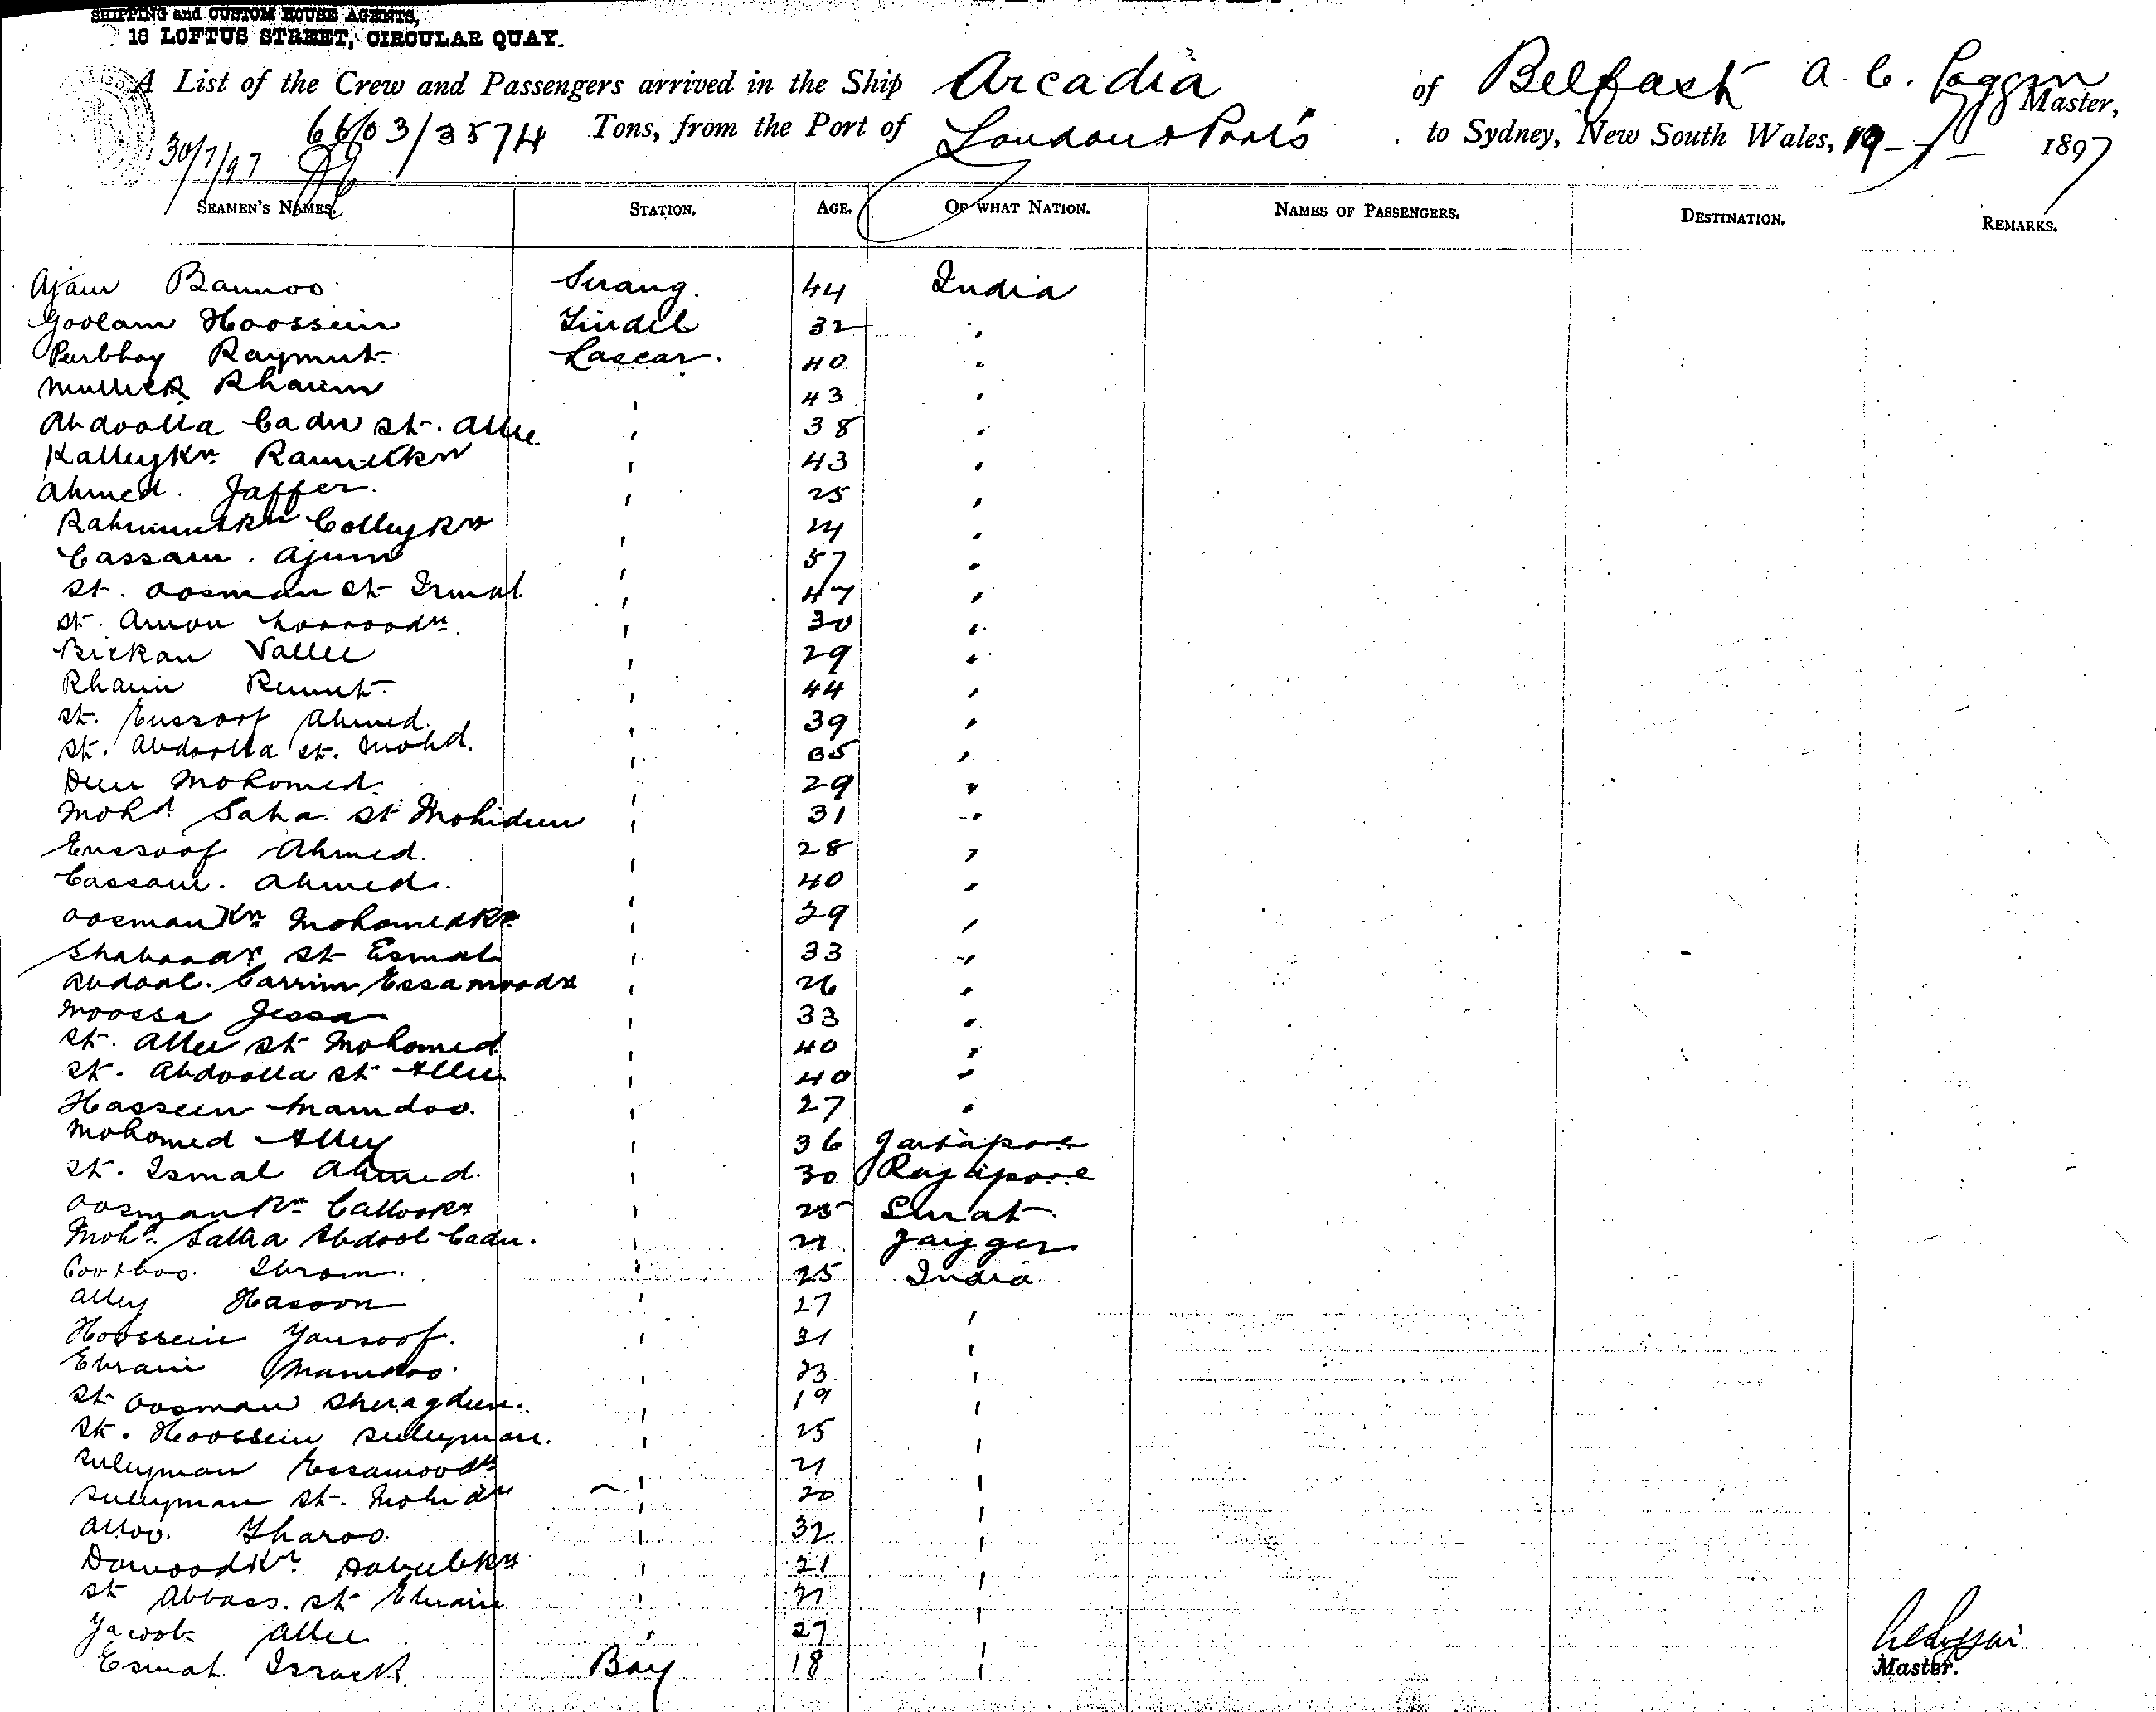 SHIPPING and CUSTOM HOUSE AGENTS,
18 LOFTUS STREET, CIRCULAR QUAY.
A List of the Crew and Passengers arrived in the Ship Arcadia of Belfast A. C. Loggin Master,
6603/3574 Tons, from the Port of London & Ports to Sydney, New South Wales, 29-7- 1897
30/7/97
SEAMEN'S NAMES. STATION. AGE. OF WHAT NATION. NAMES OF PASSENGERS. DESTINATION. REMARKS.
Ajam Bamoo Serang. 44 India
Goolam Hoossein Tindel 32 "
Purbhoy Raymut Lascar. 40 "
Mullick Rhaim " 43 "
Abdoolla Cader St. Allee " 38 "
Kalleykn 43 "
Ahmed. Jaffer. " 25 "
Colleykn 24 "
Cassam. Ajum " 57 "
St. Oosman St Ismal " 47 "
St. Amon 30 "
Bickan Vallee " 29 "
Rhaim Remut " 44 "
St. Eussoof Ahmed. " 39 "
St. Abdoolla St. Mohd. " 35 "
Deen Mohomed. " 29 "
Mohd. Saha St Mohideen " 31 "
Eussoof Ahmed. " 28 "
Cassam. Ahmed. " 40 "
Oosmankn Mohomedkn " 29 "
St Esmal " 33 "
Abdool. Carrim Essamoodn " 26 "
Moossa Jessa " 33 "
St. Allee St Mohomed " 40 "
St. Abdoolla St Allee " 40 "
Hasseen Mamdoo. " 27 "
Mohomed Alley " 36 Jaitapore
St. Ismal Ahmed. " 30 Rajapore
Oosmankn Callookn " 25 Surat
Mohd. Salha Abdool Cader. " 21 Jayger
Ebram. " 25 India
Alley Hasson " 27 "
Hoossein Yousoof. " 31 "
Ebraim Mamdoo. " 23 "
St Oosman Sheragdeen. " 19 "
St. Hoossein Suleyman. " 25 "
Suleyman Essamoodn " 21 "
Suleyman St. Mohidn " 20 "
Alloo. Tharoo. " 32 "
Dawoodkn 21 "
St Abbass. St Ebraim " 21 "
Yacoob Allee " 27 "
Esmal Issack. Boy 18 "
Master.